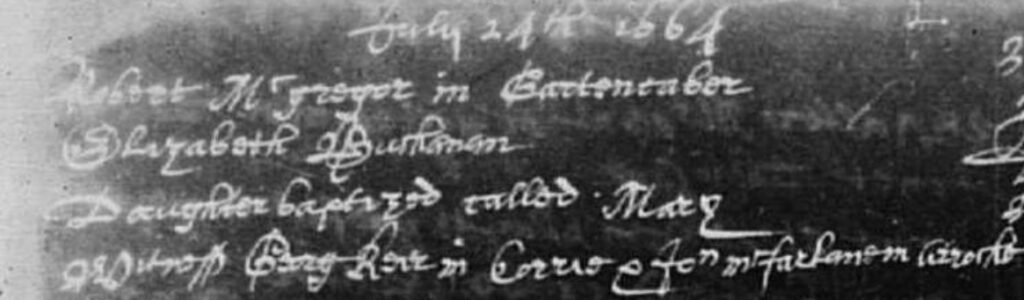 July 24th 1664
Robert Mcgregor in Gartentaber
Elizabeth Buchanan
Daughter baptized called Mary
Witness Georg Keir in Corrie & Jon mcfarlane in